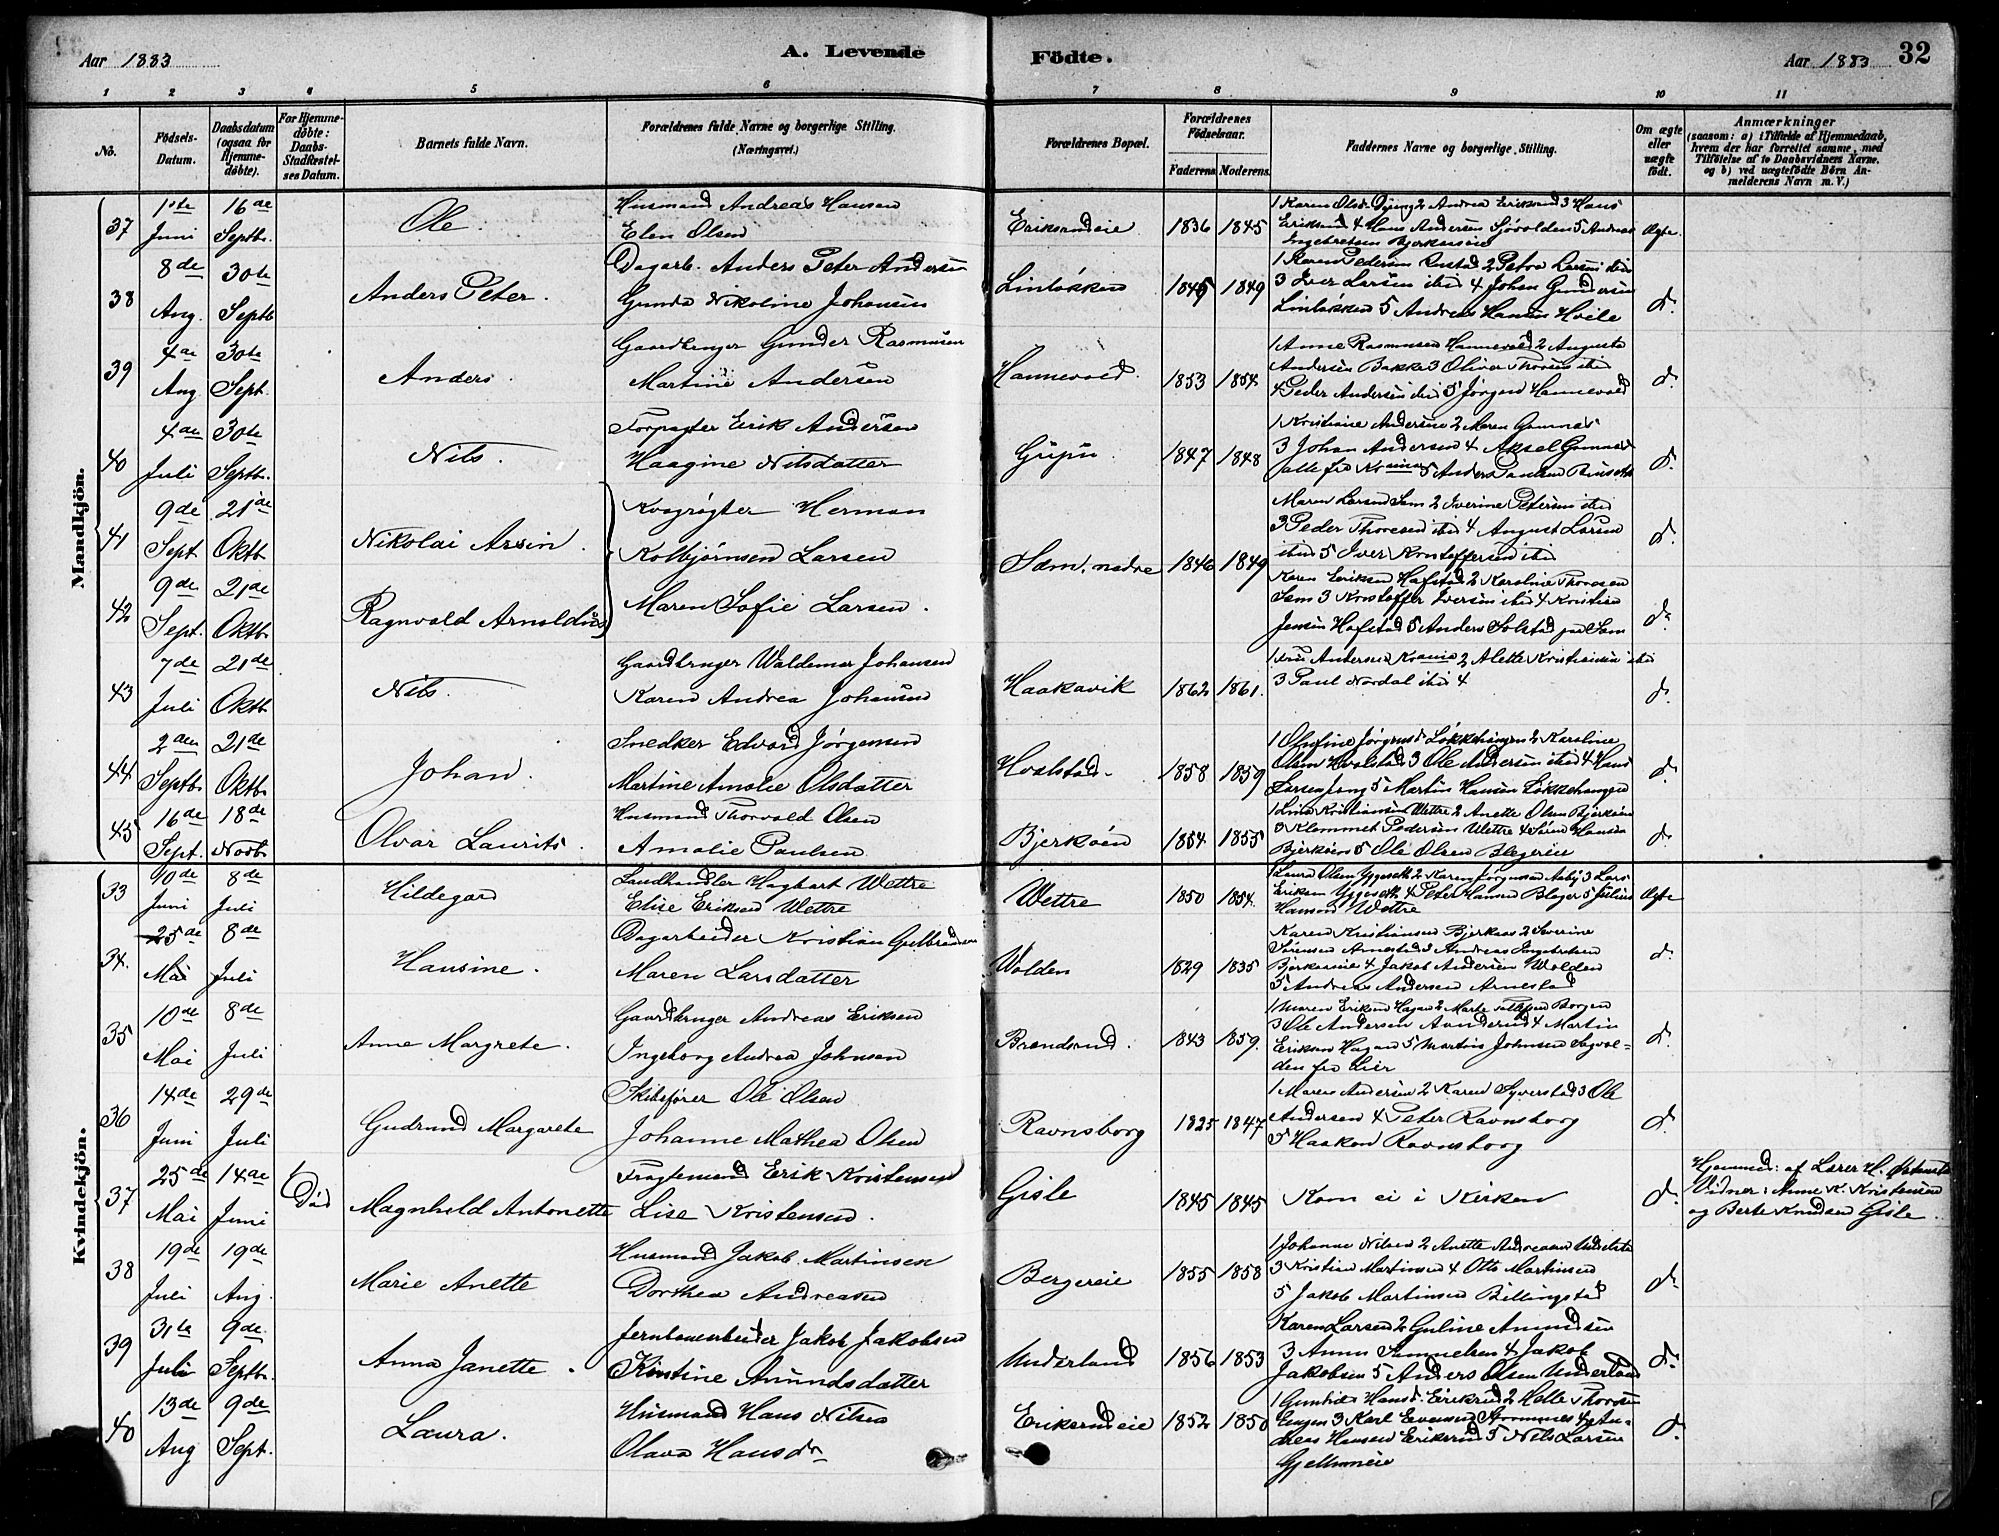 Aar 1883
A. Levende
Födte.
Aar 1883
32
1 2 3 4 5 6 7 8 9 10 11
No.
Födsels-
Datum.
Daabsdatum
(ogsaa for
Hjemme-
döbte).
For Hjemme-
döbte:
Daabs-
Stadfæstel-
ses Datum.
Barnets fulde Navn.
Forældrenes fulde Navne og borgerlige Stilling.
(Næringsvei.)
Forældrenes Bopæl.
Forældrenes
Födselsaar.
Faderens. Moderens.
Faddernes Navne og borgerlige Stilling.
Om ægte
eller
uægte
födt.
Anmærkninger
(saasom: a) i Tilfælde af Hjemmedaab,
hvem der har forrettet samme, med
Tilföielse af to Daabsvidners Navne,
og b) ved uægtefödte Börn An-
melderens Navn m. V.)
Mandkjön.
37
1ste Juni
16de Septb.
Ole.
Husmand Andreas Hansen
Elen Olsen
Eriksrudeie
1836 1845
Eriksrud 4 Hans Andersen Sjøvolden 5 Andreas
Ingebretsen Bjerkøeie
Ægte.
38
8de Aug.
30te Septb
Anders Peter.
Dagarb. Anders Peter Andersen
Gunda Nikoline Johansen
Linløkken
1845 1849
3 Iver Larsen ibid 4 Johan Gundersen
Linløkken 5 Andreas Hansen Hvile
do
39
4de Aug
30te Sept.
Anders.
Gaardbruger Gunder Rasmusen
Martine Andersen
Hannevold.
1853 1854
1 Anne Rasmusen Hannevold 2 Augusta
Andersen Bakke 3 Oliver Thorsen ibid
4 Peder Andersen ibid 5 Jørgen Hannevold
do
40
4de Juli
30te Septb.
Nils.
Forpagter Erik Andersen
Haagine Nilsdatter
1847 1848
1 Kristiane Andersen 2 Maren
3 Johan Andersen 4 Aksel
do
41
9de Sept
21de Oktb
Nikolai Arvin.
Kvægrøgter Herman
Kolbjørnsen Larsen
Maren Sofie Larsen.
Sem, nedre
1846 1849
Maren Larsen Sem 2 Iverine Petersen ibid
3 Peder Thoresen ibid 4 August Larsen
ibid 5 Iver Kristoffersen ibid
do
42
9de Sept.
21de Oktb.
Ragnvald Arnoldus
Karen Eriksen Hofstad 2 Karoline Thoresen
Sem 3 Kristoffer Iversen ibid 4 Kristian
Jensen Hofstad 5 Anders Solstad paa Sem
do
43
7de Juli
21de Oktb
Nils.
Gaardbruger Waldemar Johansen
Karen Andrea Johansen
Haakavik
1862 1861.
2 Alette Kristiansen ibid
3 Paul Nordal ibid 4
do
44
2den Septb.
21de Oktb.
Johan.
Snedker Edvard Jørgensen
Martine Amalie Olsdatter
Hvalstad.
1858 1859
1 Olufine Jørgensd Løkkehaugen 2 Karoline
Olsen Hvalstad 3 Ole Andersen ibid 4 Hans
Larsen 5 Martin Hansen Løkkehaugen
do
45
16de Sept.
18de Novb.
Olvar Laurits.
Husmand Thorvald Olsen
Amalie Paulsen
Bjerkøen
1854 1855
1 Lina Kristiansen Wettre 2 Anette Olsen Bjerkøen
3 Klemmet Pedersen Wettre 4 Søren Hansen
Bjerkøen 5 Ole Olsen
do
Kvindekjön.
33
10de Juni
8de Juli
Hildegard
Landhandler Hagbart Wettre
Elise Eriksen Wettre
Wettre
1850 1854.
1 Laura Olsen Yggeseth 2 Karen Jørgensen Aaby 3 Lars
Eriksen Yggeseth 4 Peter Hansen 5 Julius
Hansen Wettre
Ægte
34.
25de Mai
8de Juli
Hansine.
Dagarbeider Kristian Gulbrandsen
Maren Larsdatter
Volden
1829 1835
Karen Kristiansen Bjerkøen 2 Severine
Sørensen Arnestad 3 Andreas Ingebretsen
Bjerkøeie 4 Jakob Andersen Wolden
5 Andreas Andersen Arnestad
do
35
10de Mai
8de Juli
Anne Margrete.
Gaardbruger Andreas Eriksen
Ingeborg Andrea Johnsen
Brendsrud.
1843 1859.
1 Maren Eriksen Hagan 2 Marte Borgen
3 Ole Andersen 4 Martin
Eriksen Hagan 5 Martin Johnsen
den fra Lier
do
36
14de Juni
29de Juli
Gudrund Margarete
Skibsfører Ole Olsen
Johanne Mathea Olsen
Ravnsborg
1825 1847
1 Maren Andersen 2 Karen Syverstad 3 Ole
Andersen 4 Peter Ravnsborg
5 Haakon Ravnsborg
do
37
25de Mai
14de Juni
Død
Magnhild Antonette
Fragtemand Erik Kristensen
Lise Kristensen.
Gisle
1845 1845
Kom ei i Kirken
do
Hjemmed: af Lærer H.
Vidner: Anne K. Kristensen
og Berte Knudsen Gisle
38
19de Juli
19de Aug.
Marie Anette
Husmand Jakob Martinsen
Dorthea Andreasen
Bergereie
1855 1858
1 Johanne Nilsen 2 Anette Andreasen
3 Kristian Martinsen 4 Otto Martinsen
5 Jakob Martinsen Billingstad
do
39
31te Juli
9de Septb.
Anna Janette.
Jernbanearbeider Jakob Jakobsen
Kirstine Amundsdatter
Underland
1856 1853
Karen Larsen 2 Guline Amundsen
3 Anne Simmelsen 4 Jakob
Jakobsen 5 Anders Olsen Underland
do
40
13de Aug
9de Sept.
Laura.
Husmand Hans Nilsen
Olava Hansdr
Eriksrudeie
1852 1850
1 Gunhild Hansd. Eriksrud 2 Helle Thorsen
Engen 3 Karl Evensen 4 An-
dreas Hansen Eriksrud 5 Nils Larsen
do